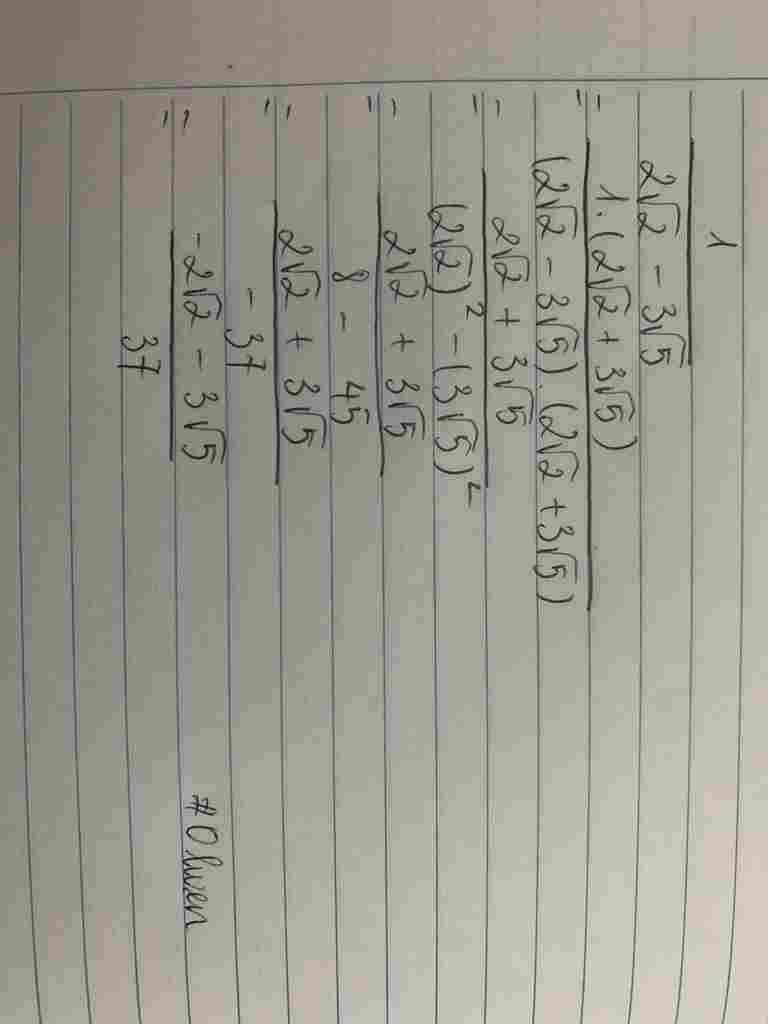 1
2√2 - 3√5
= 1.(2√2 + 3√5)
(2√2 - 3√5).(2√2 + 3√5)
= 2√2 + 3√5
(2√2)² - (3√5)²
= 2√2 + 3√5
8 - 45
= 2√2 + 3√5
- 37
= -2√2 - 3√5
37